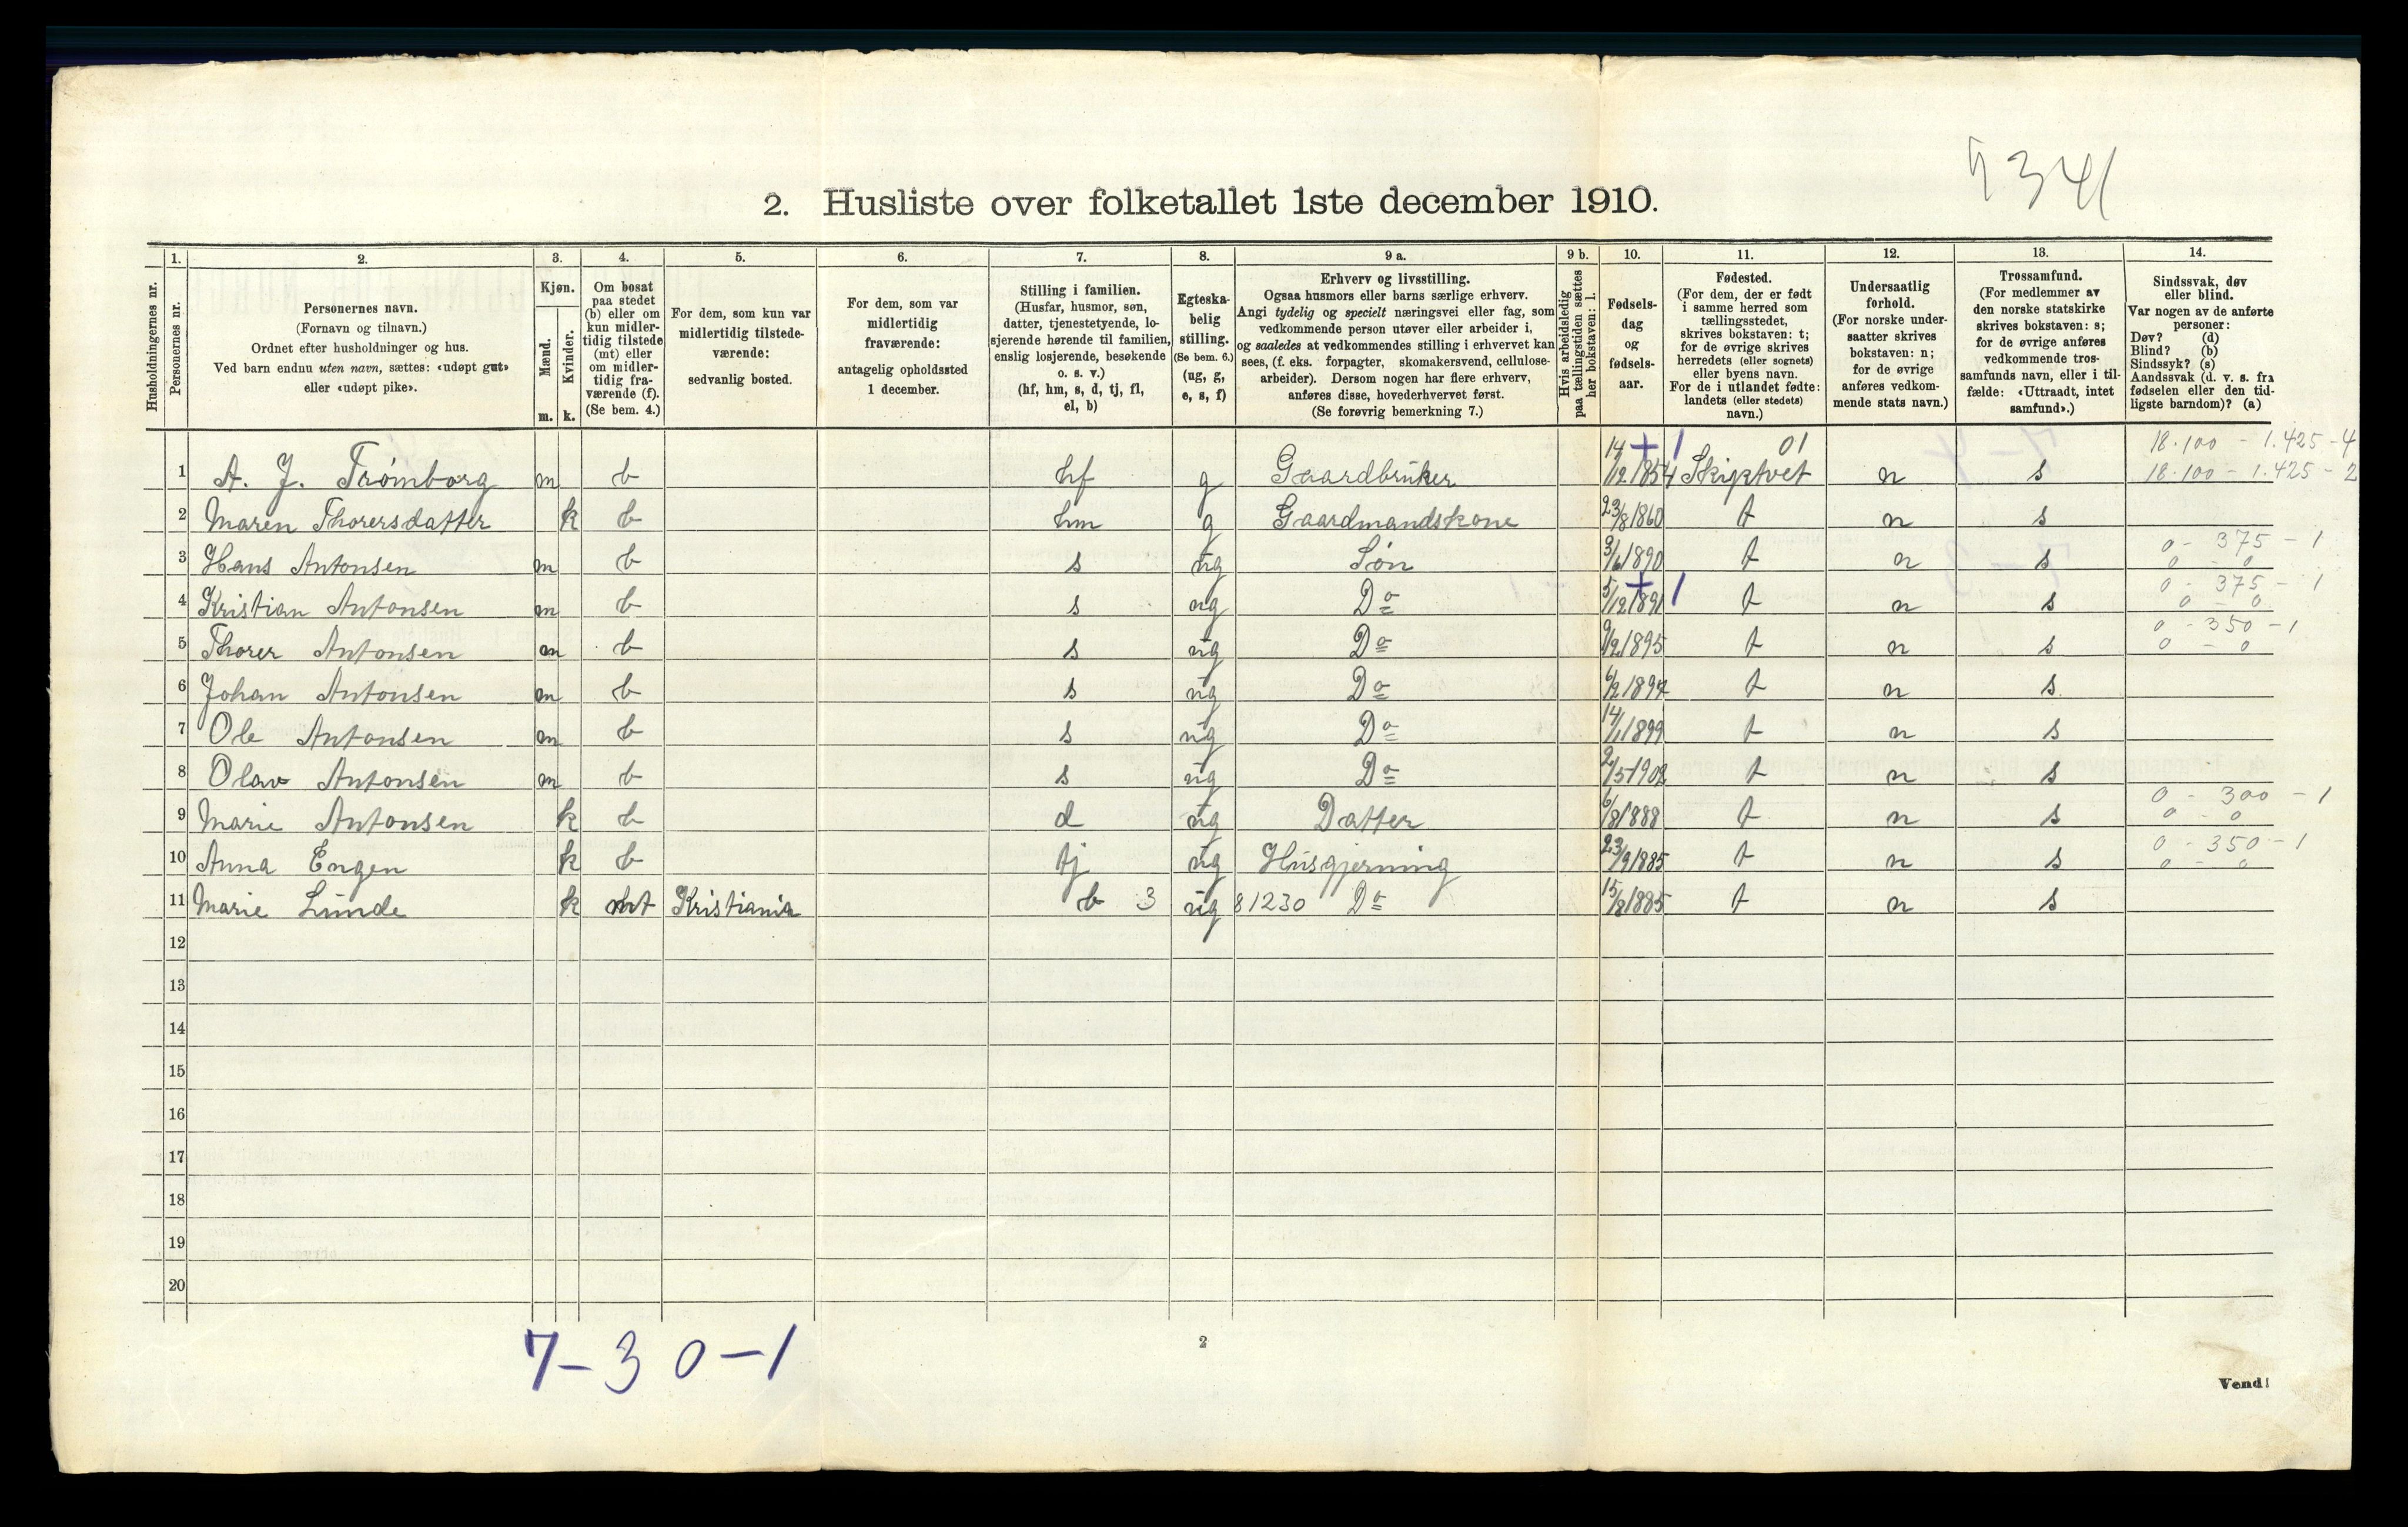 7341
2. Husliste over folketallet 1ste december 1910.
Husholdningernes nr.
1.
Personernes nr.
2.
Personernes navn.
(Fornavn og tilnavn.)
Ordnet efter husholdninger og hus.
Ved barn endnu uten navn, sættes: «udøpt gut»
eller «udøpt pike».
3.
Kjøn.
Mænd.
m.
Kvinder.
k.
4.
Om bosat
paa stedet
(b) eller om
kun midler-
tidig tilstede
(mt) eller
om midler-
tidig fra-
værende (f).
(Se bem. 4.)
5.
For dem, som kun var
midlertidig tilstede-
værende:
sedvanlig bosted.
6.
For dem, som var
midlertidig
fraværende:
antagelig opholdssted
1 december.
7.
Stilling i familien.
(Husfar, husmor, søn,
datter, tjenestetyende, lo-
sjerende hørende til familien,
enslig losjerende, besøkende
o. s. v.)
(hf, hm, s, d, tj, fl,
el, b)
8.
Egteska-
belig
stilling.
(Se bem. 6.)
(ug, g,
e, s, f)
9 a.
Erhverv og livsstilling.
Ogsaa husmors eller barns særlige erhverv.
Angi tydelig og specielt næringsvei eller fag, som
vedkommende person utøver eller arbeider i,
og saaledes at vedkommendes stilling i erhvervet kan
sees, (f. eks. forpagter, skomakersvend, cellulose-
arbeider). Dersom nogen har flere erhverv,
anføres disse, hovederhvervet først.
(Se forøvrig bemerkning 7.)
9 b.
Hvis arbeidsledig
paa tællingstiden sættes
her bokstaven: l.
10.
Fødsels-
dag
og
fødsels-
aar.
11.
Fødested.
(For dem, der er født
i samme herred som
tællingsstedet,
skrives bokstaven: t;
for de øvrige skrives
herredets (eller sognets)
eller byens navn.
For de i utlandet fødte:
landets (eller stedets)
navn.)
12.
Undersaatlig
forhold.
(For norske under-
saatter skrives
bokstaven: n;
for de øvrige
anføres vedkom-
mende stats navn.)
13.
Trossamfund.
(For medlemmer av
den norske statskirke
skrives bokstaven: s;
for de øvrige anføres
vedkommende tros-
samfunds navn, eller i til-
fælde: «Uttraadt, intet
samfund».)
14.
Sindssvak, døv
eller blind.
Var nogen av de anførte
personer:
Døv? (d)
Blind? (b)
Sindssyk? (s)
Aandssvak (d. v. s. fra
fødselen eller den tid-
ligste barndom)? (a)
+1 01 18.100 - 1.425 - 4
1 A. J. Trømborg m b hf g Gaardbruker 14/12 1854 Skiptvet n s 18.100 - 1.425 - 2
2 Maren Thorersdatter k b hm g Gaardmandskone 23/8 1860 t n s
0 - 375 - 1
3 Hans Antonsen m b s ug Søn 3/6 1890 t n s 0 - 0
+1 0 - 375 - 1
4 Kristian Antonsen m b s ug Do 5/12 1891 t n s 0 - 0
0 - 350 - 1
5 Thorer Antonsen m b s ug Do 9/2 1895 t n s 0 - 0
6 Johan Antonsen m b s ug Do 6/2 1897 t n s
7 Ole Antonsen m b s ug Do 14/1 1899 t n s
8 Olav Antonsen m b s ug Do 2/5 1902 t n s
0 - 300 - 1
9 Marie Antonsen k b d ug Datter 6/8 1888 t n s 0 - 0
0 - 350 - 1
10 Anna Engen k b tj ug Husgjerning 23/9 1885 t n s 0 - 0
11 Marie Lunde k mt Kristiania b 3 ug 81230 Do 15/8 1885 t n s
12
13
14
15
16
17
18
19
20
7 - 3 0 - 1
2
Vend!